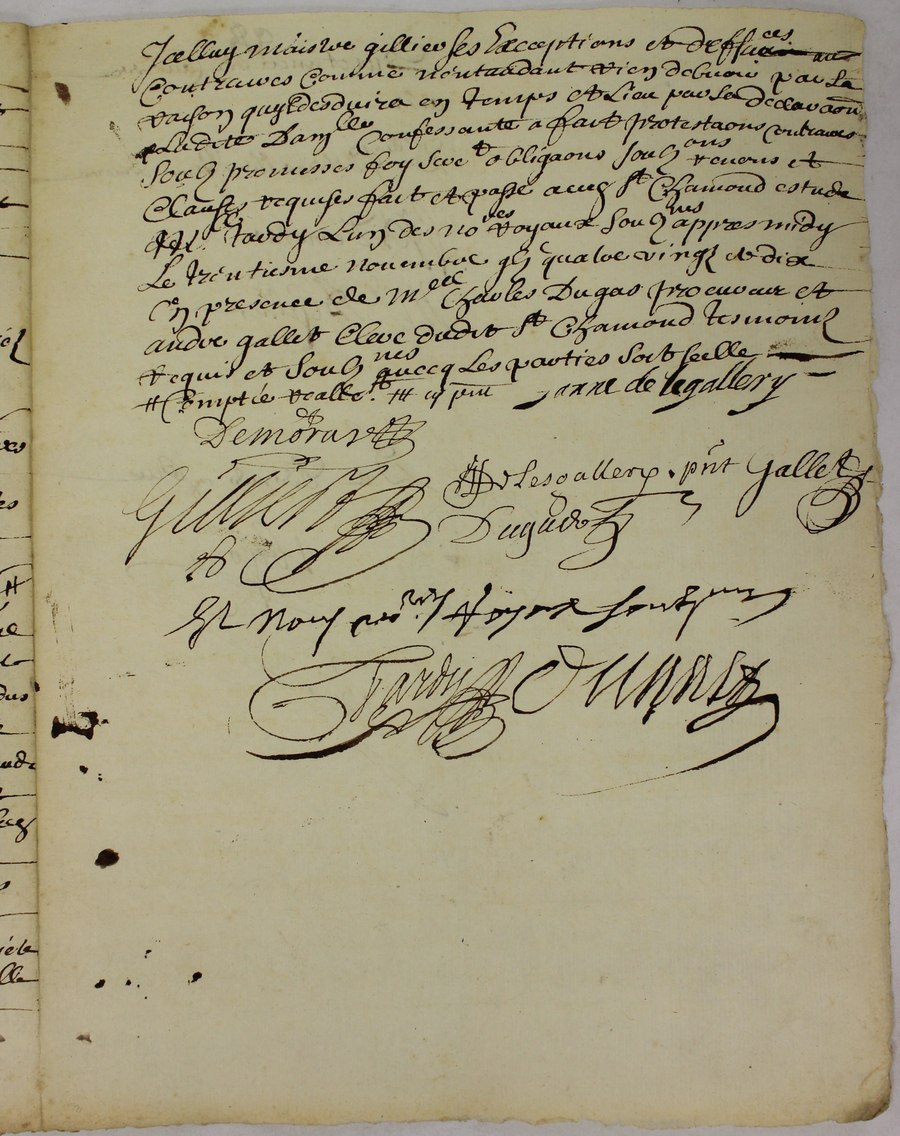 Icelluy maistre gillier ses Exceptions et deffances au
Contraires Comme n'entandant Rien debvoir par la
raison quyl desduira en temps et Lieu par la declaraon
Ladite Damlle Confessante a fait protestaons contraires
Soubz promesses foy sert obligaons Soubzons renons et
Clauses requises fait et passé aud St Chamond estude
de Me Tardy L'un des nores Royaux Soubznes appres midy
Le trentiesme novembre gbj quatre vingt et dix
En presence de Me Charles Dugas procureur et
andré gallet Clerc dudit St Chamond tesmoins
requis et Soubznes avecq Les parties soit scelle
Comptée realle
anne de legallery
Demoras
Gillier
de Lesgallery pnt Gallet
Dugas
Et Nous nores Royaux soubznes
Tardy